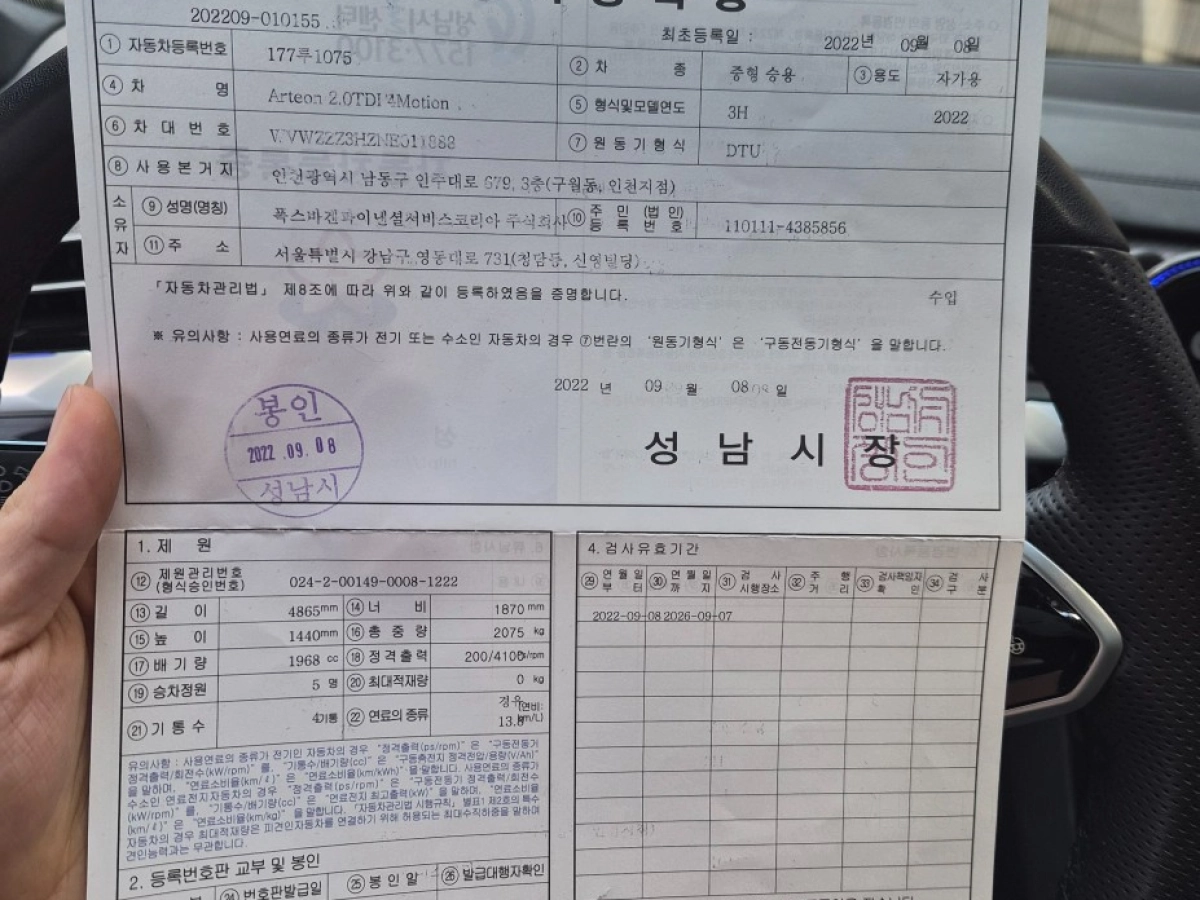 202209-010155
최초등록일 : 2022년 09월 08일
① 자동차등록번호 177루1075 ② 차 종 중형 승용 ③ 용도 자가용
④ 차 명 Arteon 2.0TDI 4Motion ⑤ 형식및모델연도 3H 2022
⑥ 차 대 번 호 ⑦ 원 동 기 형 식 DTU
⑧ 사 용 본 거 지 인천광역시 남동구 인주대로 679, 3층(구월동, 인천지점)
소유자 ⑨ 성명(명칭) 폭스바겐파이낸셜서비스코리아 주식회사 ⑩ 주 민 (법 인) 등 록 번 호 110111-4385856
⑪ 주 소 서울특별시 강남구 영동대로 731(청담동, 신영빌딩)
「자동차관리법」 제8조에 따라 위와 같이 등록하였음을 증명합니다.
수입
※ 유의사항 : 사용연료의 종류가 전기 또는 수소인 자동차의 경우 ⑦번란의 '원동기형식'은 '구동전동기형식'을 말합니다.
2022 년 09 월 08 일
봉인
2022.09.08
성남시
성 남 시 장
1. 제 원
⑫ 제원관리번호 (형식승인번호) 024-2-00149-0008-1222
⑬ 길 이 4865mm ⑭ 너 비 1870 mm
⑮ 높 이 1440mm ⑯ 총 중 량 2075 kg
⑰ 배 기 량 1968 cc ⑱ 정격출력 200/4100
⑲ 승차정원 5 명 ⑳ 최대적재량 0 kg
㉑ 기 통 수 4기통 ㉒ 연료의 종류 경유 (연비: 13.8
유의사항 : 사용연료의 종류가 전기인 자동차의 경우 "정격출력(ps/rpm)"은 "구동전동기
정격출력/회전수(kW/rpm)"를, "기통수/배기량(cc)"은 "구동축전지 정격전압/용량(V/Ah)"
을 말하며, "연료소비율(km/ℓ)"은 "연료소비율(km/kWh)"을 말합니다. 사용연료의 종류가
수소인 연료전지자동차의 경우 "정격출력(ps/rpm)"은 "구동전동기 정격출력/회전수
(kW/rpm)"를, "기통수/배기량(cc)"은 "연료전지 최고출력(kW)"을 말하며, "연료소비율
(km/ℓ)"은 "연료소비율(km/kg)"을 말합니다. 「자동차관리법 시행규칙」 별표1 제2호의 특수
자동차의 경우 최대적재량은 피견인자동차를 연결하기 위해 허용되는 최대수직하중을 말하며
견인능력과는 무관합니다.
2. 등록번호판 교부 및 봉인
㉔ 번호판발급일 ㉕ 봉 인 일 ㉖ 발급대행자확인
4. 검사유효기간
㉙ 연 월 일 부 터 ㉚ 연 월 일 까 지 ㉛ 검 사 시행장소 ㉜ 주 행 거 리 ㉝ 검사책임자 확 인 ㉞ 검 사 구 분
2022-09-08 2026-09-07